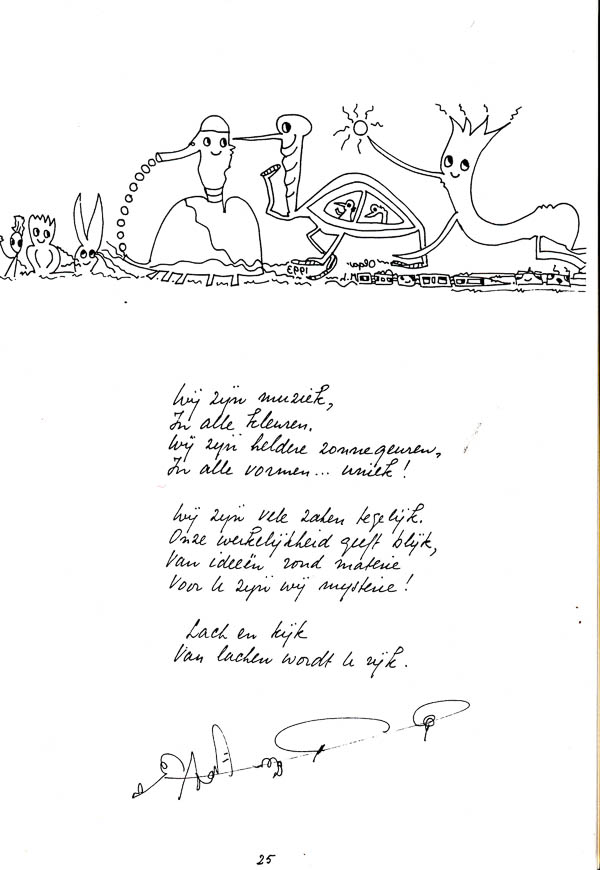 1993
Wij zijn muziek,
In alle kleuren.
Wij zijn heldere zonnegeuren,
In alle vormen... uniek!
Wij zijn vele zaken tegelijk.
Onze werkelijkheid geeft blijk,
Van ideeën rond materie
Voor U zijn wij mysterie!
Lach en kijk
Van lachen wordt U rijk.
25